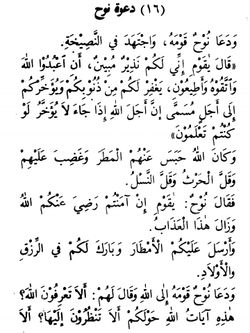 (١٦) دعوة نوح
وَدَعَا نُوْحٌ قَوْمَهُ، وَاجْتَهَدَ فِي النَّصِيْحَةِ.
«قَالَ يٰقَوْمِ إِنِّي لَكُمْ نَذِيْرٌ مُبِيْنٌ، أَنِ اعْبُدُوا اللهَ
وَاتَّقُوْهُ وَأَطِيْعُوْنِ، يَغْفِرْ لَكُمْ مِنْ ذُنُوْبِكُمْ وَيُؤَخِّرْكُمْ
إِلَى أَجَلٍ مُسَمًّى إِنَّ أَجَلَ اللهِ إِذَا جَاءَ لَا يُؤَخَّرُ لَوْ
كُنْتُمْ تَعْلَمُوْنَ»
وَكَانَ اللهُ حَبَسَ عَنْهُمُ الْمَطَرَ وَغَضِبَ عَلَيْهِمْ
وَقَلَّ الْحَرْثُ وَقَلَّ النَّسْلُ.
فَقَالَ نُوْحٌ: يٰقَوْمِ إِنْ آمَنْتُمْ رَضِيَ عَنْكُمُ اللهُ
وَزَالَ هٰذَا الْعَذَابُ.
وَأَرْسَلَ عَلَيْكُمُ الْأَمْطَارَ وَبَارَكَ لَكُمْ فِي الرِّزْقِ
وَالْأَوْلَادِ.
وَدَعَا نُوْحٌ قَوْمَهُ إِلَى اللهِ وَقَالَ لَهُمْ: أَلَا تَعْرِفُوْنَ اللهَ؟
هٰذِهِ آيَاتُ اللهِ حَوْلَكُمْ أَلَا تَنْظُرُوْنَ إِلَيْهَا؟ أَلَا